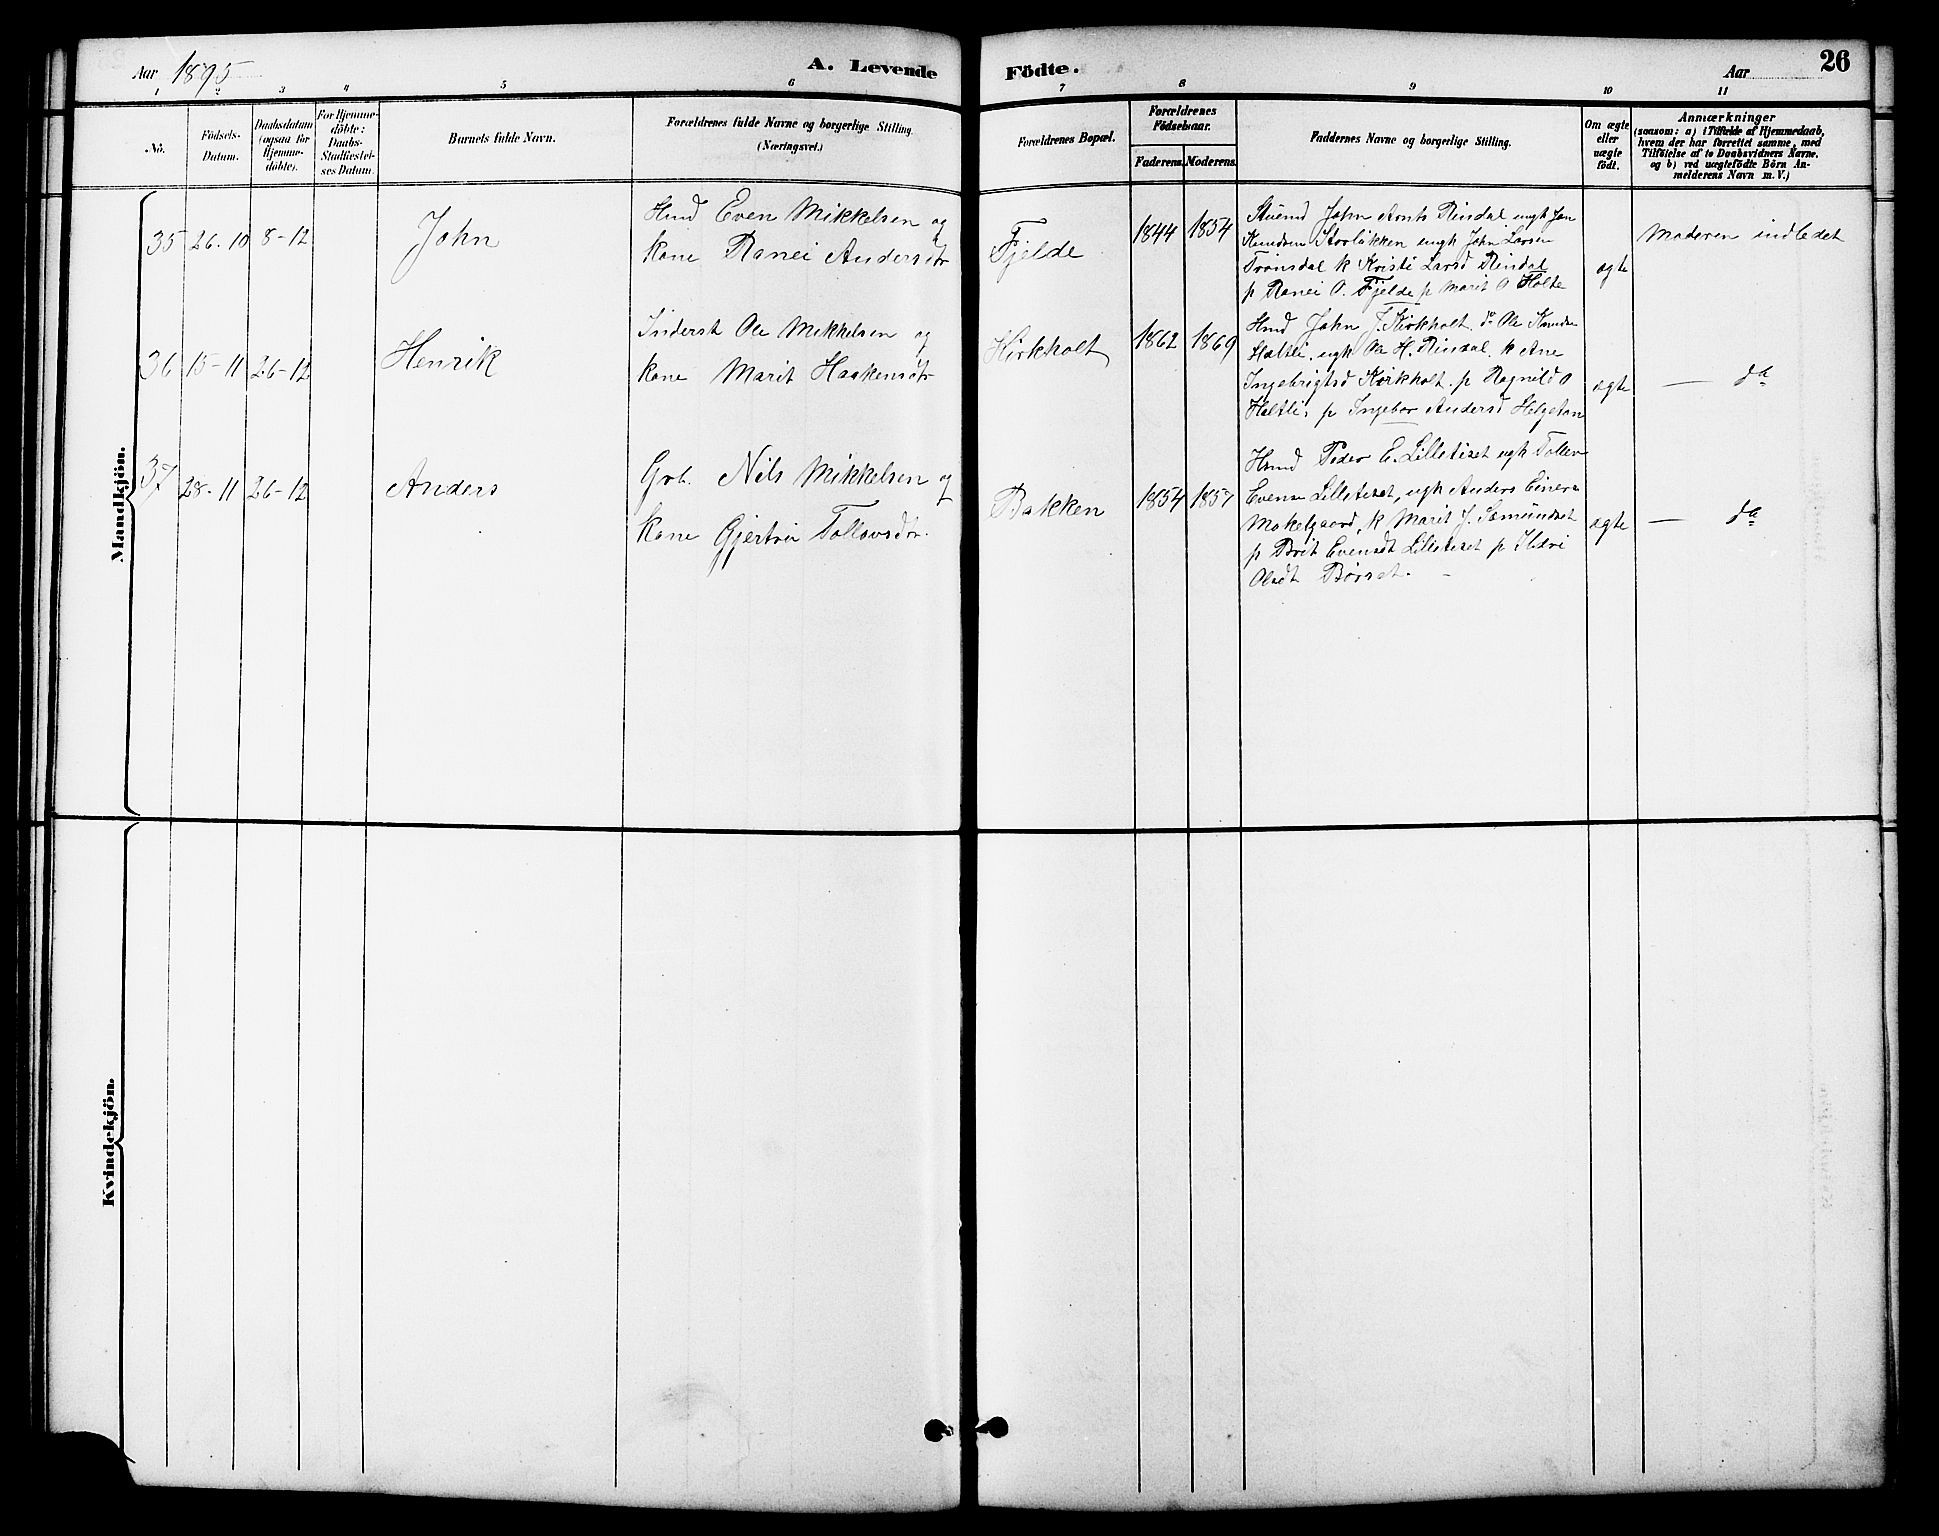 Aar 1895
A. Levende Födte.
Aar
26
1 2 3 4 5 6 7 8 9 10 11
No.
Födsels-
Datum.
Daabsdatum
(ogsaa for
Hjemme-
döbte).
For Hjemme-
döbte:
Daabs-
Stadfæstel-
ses Datum.
Barnets fulde Navn.
Forældrenes fulde Navne og borgerlige Stilling.
(Næringsvei.)
Forældrenes Bopæl.
Forældrenes
Födselsaar.
Faderens.
Moderens.
Faddernes Navne og borgerlige Stilling.
Om ægte
eller
uægte
födt.
Anmærkninger
(saasom: a) i Tilfælde af Hjemmedaab,
hvem der har forrettet samme, med
Tilföielse af to Daabsvidners Navne,
og b) ved uægtefödte Börn An-
melderens Navn m. V.)
Mandkjön.
35 26-10 8-12
John
Hmd Even Mikkelsen og
kone Ranei Andersdtr
Fjelde
1844 1854
John Arnts Rindal ungk Jon
Knudsen Storløkken ungk John Larsen
Trønsdal k Kristi Larsd Rindal
p Ranei O. Fjelde p Marit O Holte
ægte
Moderen indledet
36 15-11 26-12
Henrik
Inderst Ole Mikkelsen og
kone Marit Haakensdtr
Kirkholt
1862 1869
Hmd John J. Kirkholt, do Ole Knuds
Haltli, ungk Ole H. Rindal, k Ane
Ingebrigtsd Kirkholt. p Ragnild O
Haltli, p Ingebor Andersd Helgetan
ægte
— do
37 28-11 26-12
Anders
Grb. Nils Mikkelsen og
kone Gjertru Tollovsdtr.
Bakken
1854 1857
Hmd Peder E. Lilletiset ugk Tollev
Evens Lilletiset, ugk Anders Einers
Mokelgaard, k Marit J. Sæmundset
p Brit Evensdt Lilletiset p
Olsdt Børset. -
ægte
— do
Kvindekjön.